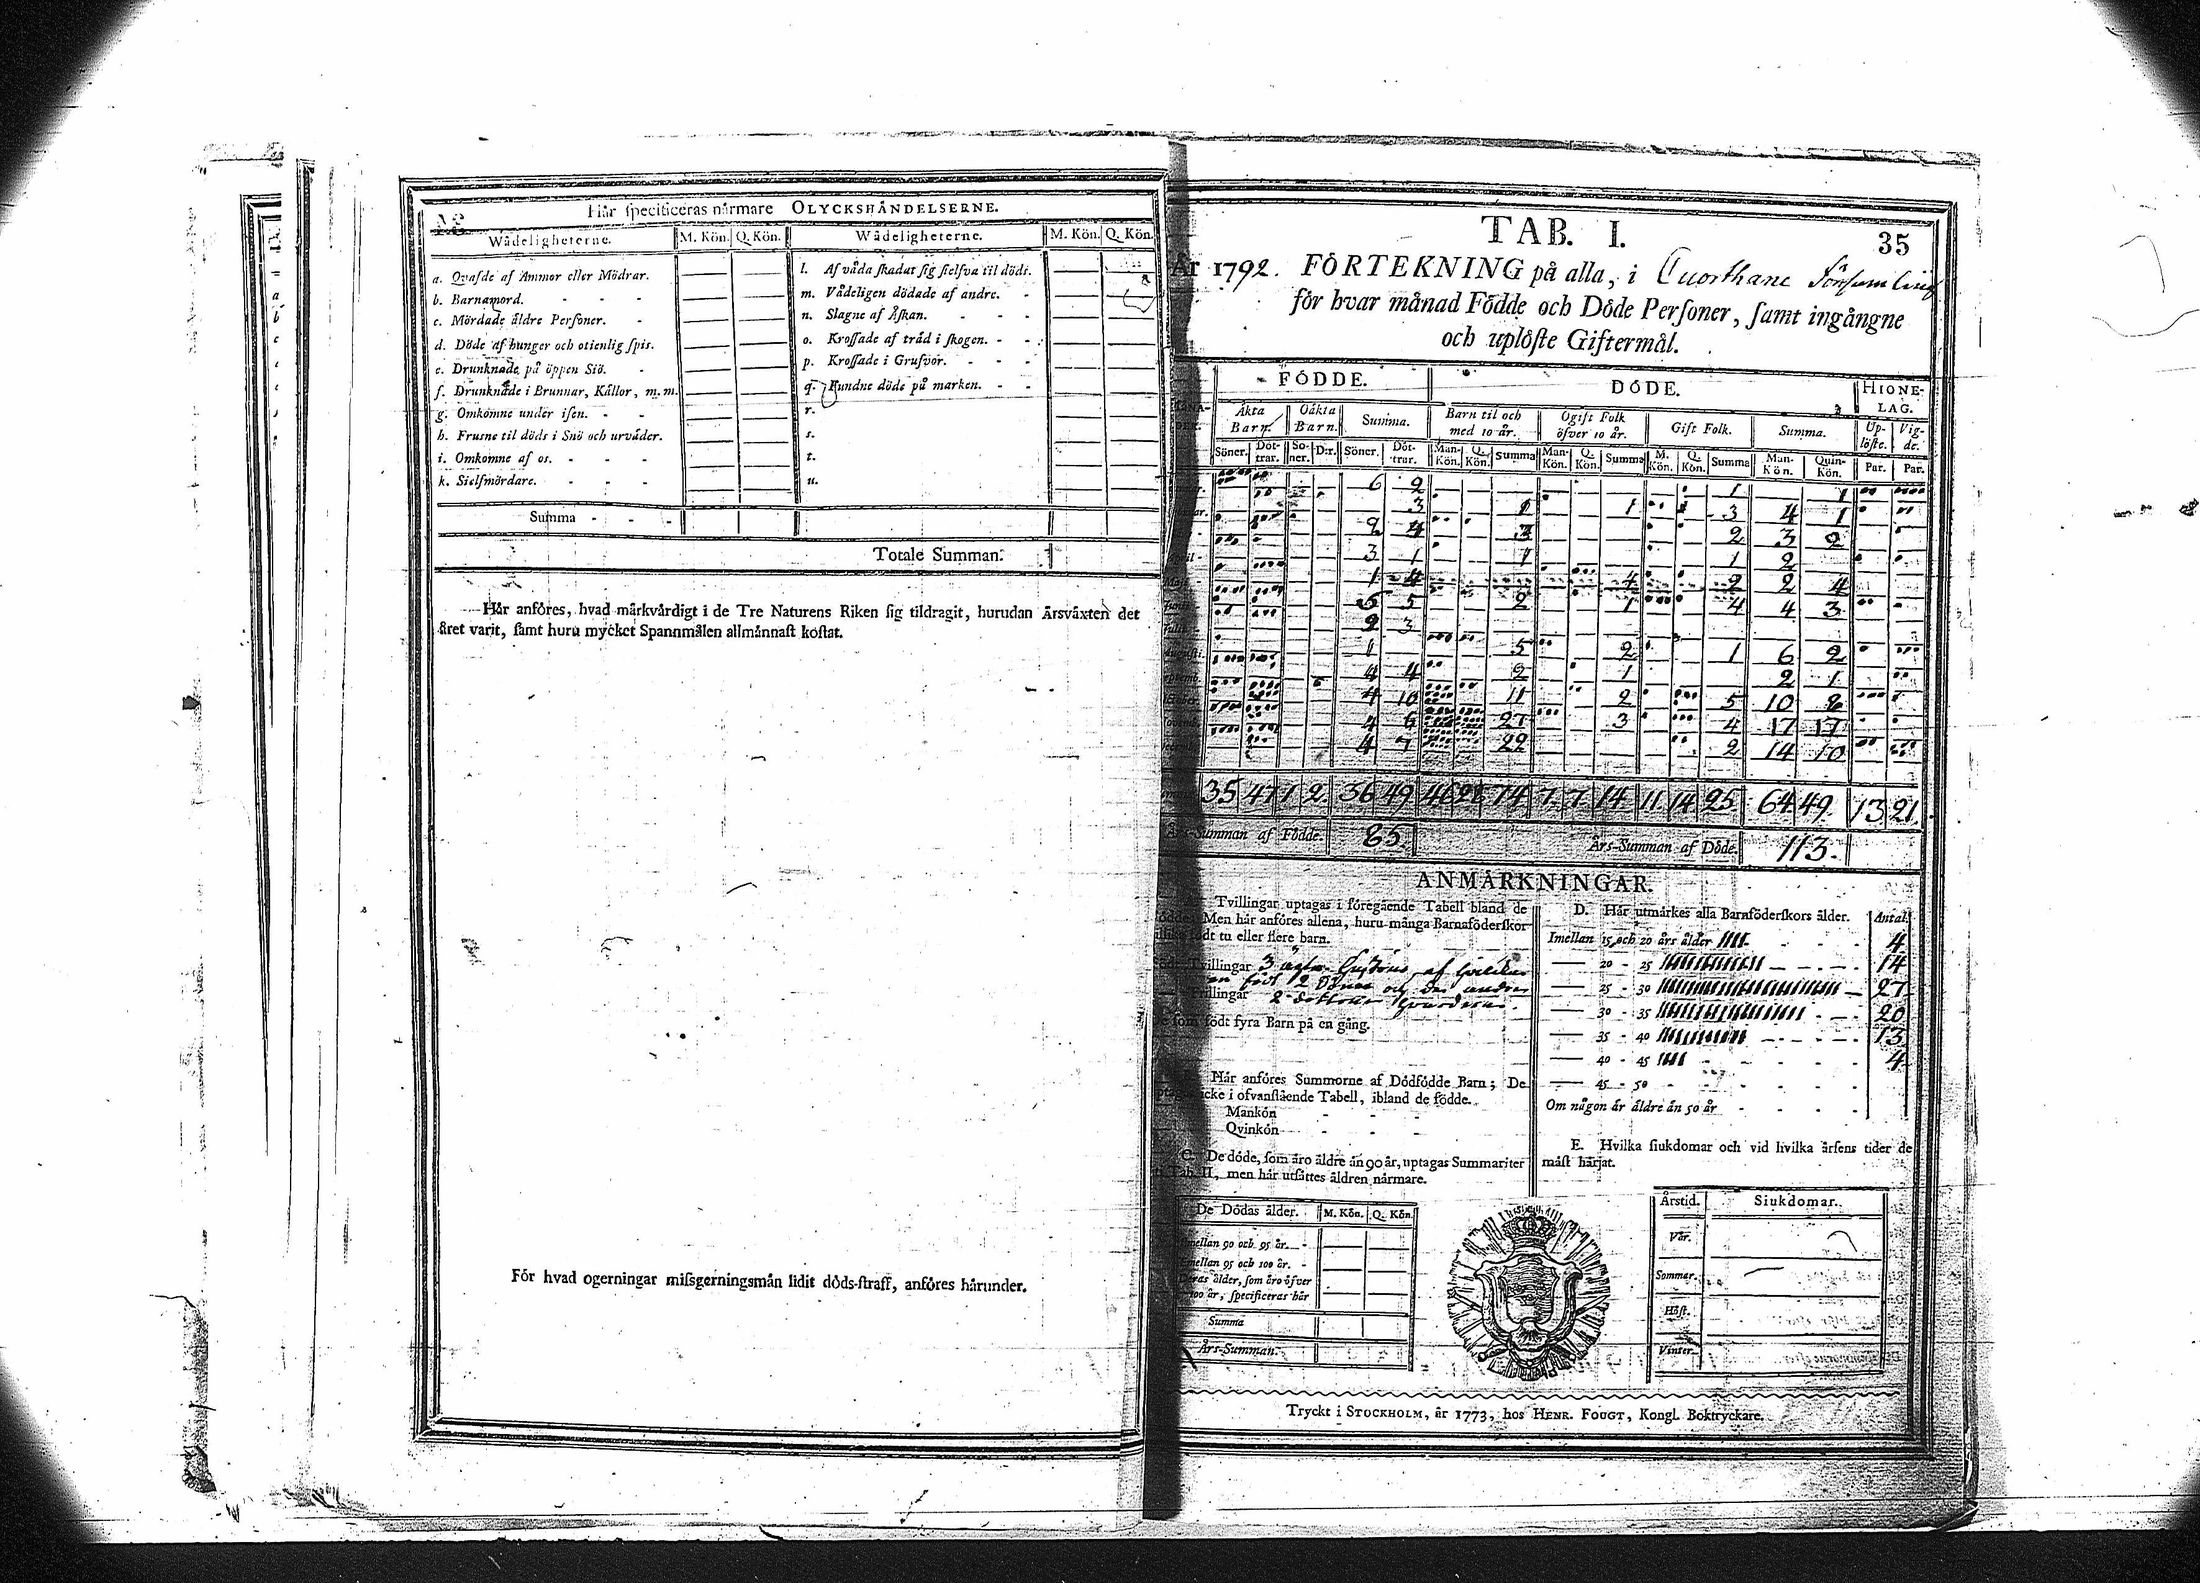 34
Här specificeras närmare OLYCKSHÄNDELSERNE.
Wådeligheterne. M. Kön. Q. Kön. Wådeligheterne. M. Kön. Q. Kön.
a. Qvafde af Ammor eller Mödrar.
b. Barnamord.
c. Mördade äldre Personer.
d. Döde af hunger och otienlig spis.
e. Drunknade på öppen Siö.
f. Drunknade i Brunnar, Källor, m. m.
g. Omkomne under isen.
h. Frusne til döds i Snö och urväder.
i. Omkomne af os.
k. Sielfmördare.
l. Af våda skadat sig sielfva til döds.
m. Vådeligen dödade af andre.
n. Slagne af Åskan.
o. Krossade af träd i skogen.
p. Krossade i Grufvor.
q. Fundne döde på marken.
r.
s.
t.
u.
Summa
Totale Summan.
Här anföres, hvad märkvärdigt i de Tre Naturens Riken sig tildragit, hurudan Årsväxten det
året varit, samt huru mycket Spannmålen allmännast kostat.
För hvad ogerningar missgerningsmän lidit döds-straff, anföres härunder.
TAB. I.
35
År 1792. FÖRTEKNING på alla, i Cuorthane Församling
för hvar månad Födde och Döde Personer, samt ingångne
och uplöste Giftermål.
FÖDDE. DÖDE. HIONE-LAG.
Äkta Barn. Oäkta Barn. Summa. Barn til och med 10 år. Ogift Folk öfver 10 år. Gift Folk. Summa. Up-löste. Vig-de.
Söner. Döt-trar. Sö-ner. D:r. Söner. Döt-trar. Man-Kön. Q. Kön. Summa Man-Kön. Q. Kön. Summa M. Kön. Q. Kön. Summa Man-Kön. Quin-Kön. Par. Par.
6 2 1 1
3 1 1 3 4 1
2 4 3 2 3 2
3 1 1 1 2
1 4 4 2 2 4
5 5 2 1 4 4 3
2 3
1 5 2 1 6 2
4 4 2 1 2 1
4 10 11 2 5 10 8
4 6 27 3 4 17 17
4 7 22 2 14 10
35 47 1 2 36 49 46 28 74 7 7 14 11 14 25 64 49 13 21
Års-Summan af Födde. 85.
Års-Summan af Döde. 113.
ANMÄRKNINGAR.
Tvillingar uptagas i föregående Tabell bland de
födde. Men här anföres allena, huru många Barnaföderskor
födt tu eller flere barn.
Tvillingar 3
Trillingar
som födt fyra Barn på en gång.
Här anföres Summorne af Dödfödde Barn; De
icke i ofvanstående Tabell, ibland de födde.
Mankön
Qvinkön
C. De döde, som äro äldre än 90 år, uptagas Summariter
Tab. II, men här utsättes åldren närmare.
De Dödas ålder. M. Kön. Q. Kön.
Imellan 90 och 95 år.
Imellan 95 och 100 år.
Deras ålder, som äro öfver
100 år, specificeras här
Summa
Års-Summan.
D. Här utmärkes alla Barnföderskors ålder. Antal.
Imellan 15 och 20 års ålder 4
20 - 25 14
25 - 30 27
30 - 35 20
35 - 40 13
40 - 45 4
45 - 50
Om någon är äldre än 50 år
E. Hvilka siukdomar och vid hvilka årsens tider de
mäst härjat.
Årstid. Siukdomar.
Vår.
Sommar.
Höst.
Vinter.
Tryckt i STOCKHOLM, år 1773, hos HENR. FOUGT, Kongl. Boktryckare.